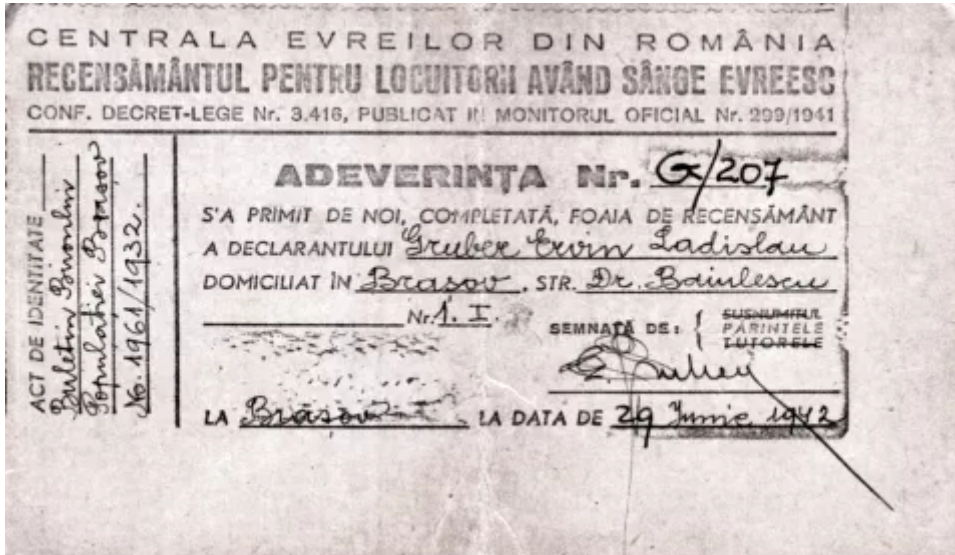 CENTRALA EVREILOR DIN ROMÂNIA
RECENSĂMÂNTUL PENTRU LOCUITORII AVÂND SÂNGE EVREESC
CONF. DECRET-LEGE Nr. 3.416, PUBLICAT IN MONITORUL OFICIAL Nr. 299/1941
ACT DE IDENTITATE
Buletin Biroului
Populației Brasov
No. 1961/1932.
ADEVERINȚA Nr. G/207
S'A PRIMIT DE NOI, COMPLETATĂ, FOAIA DE RECENSĂMÂNT
A DECLARANTULUI Gruber Ervin Ladislau
DOMICILIAT ÎN Brasov, STR. Dr. Baiulescu
Nr. 1. I.
SEMNATĂ DE: { SUSNUMITUL
PĂRINTELE
TUTORELE
LA Brasov LA DATA DE 29 Iunie 1942